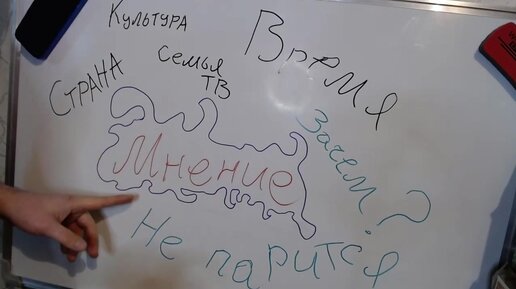 Культура
Время
Семья
ТВ
Страна
Зачем?
Мнение
Не парится